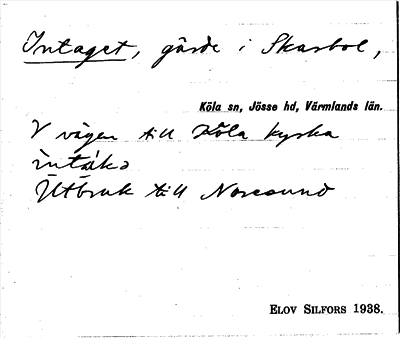 Intaget, gärde i Skarbol,
Köla sn, Jösse hd, Värmlands län.
V vägen till Köla kyrka
Utbruk till Noresund
ELOV SILFORS 1938.